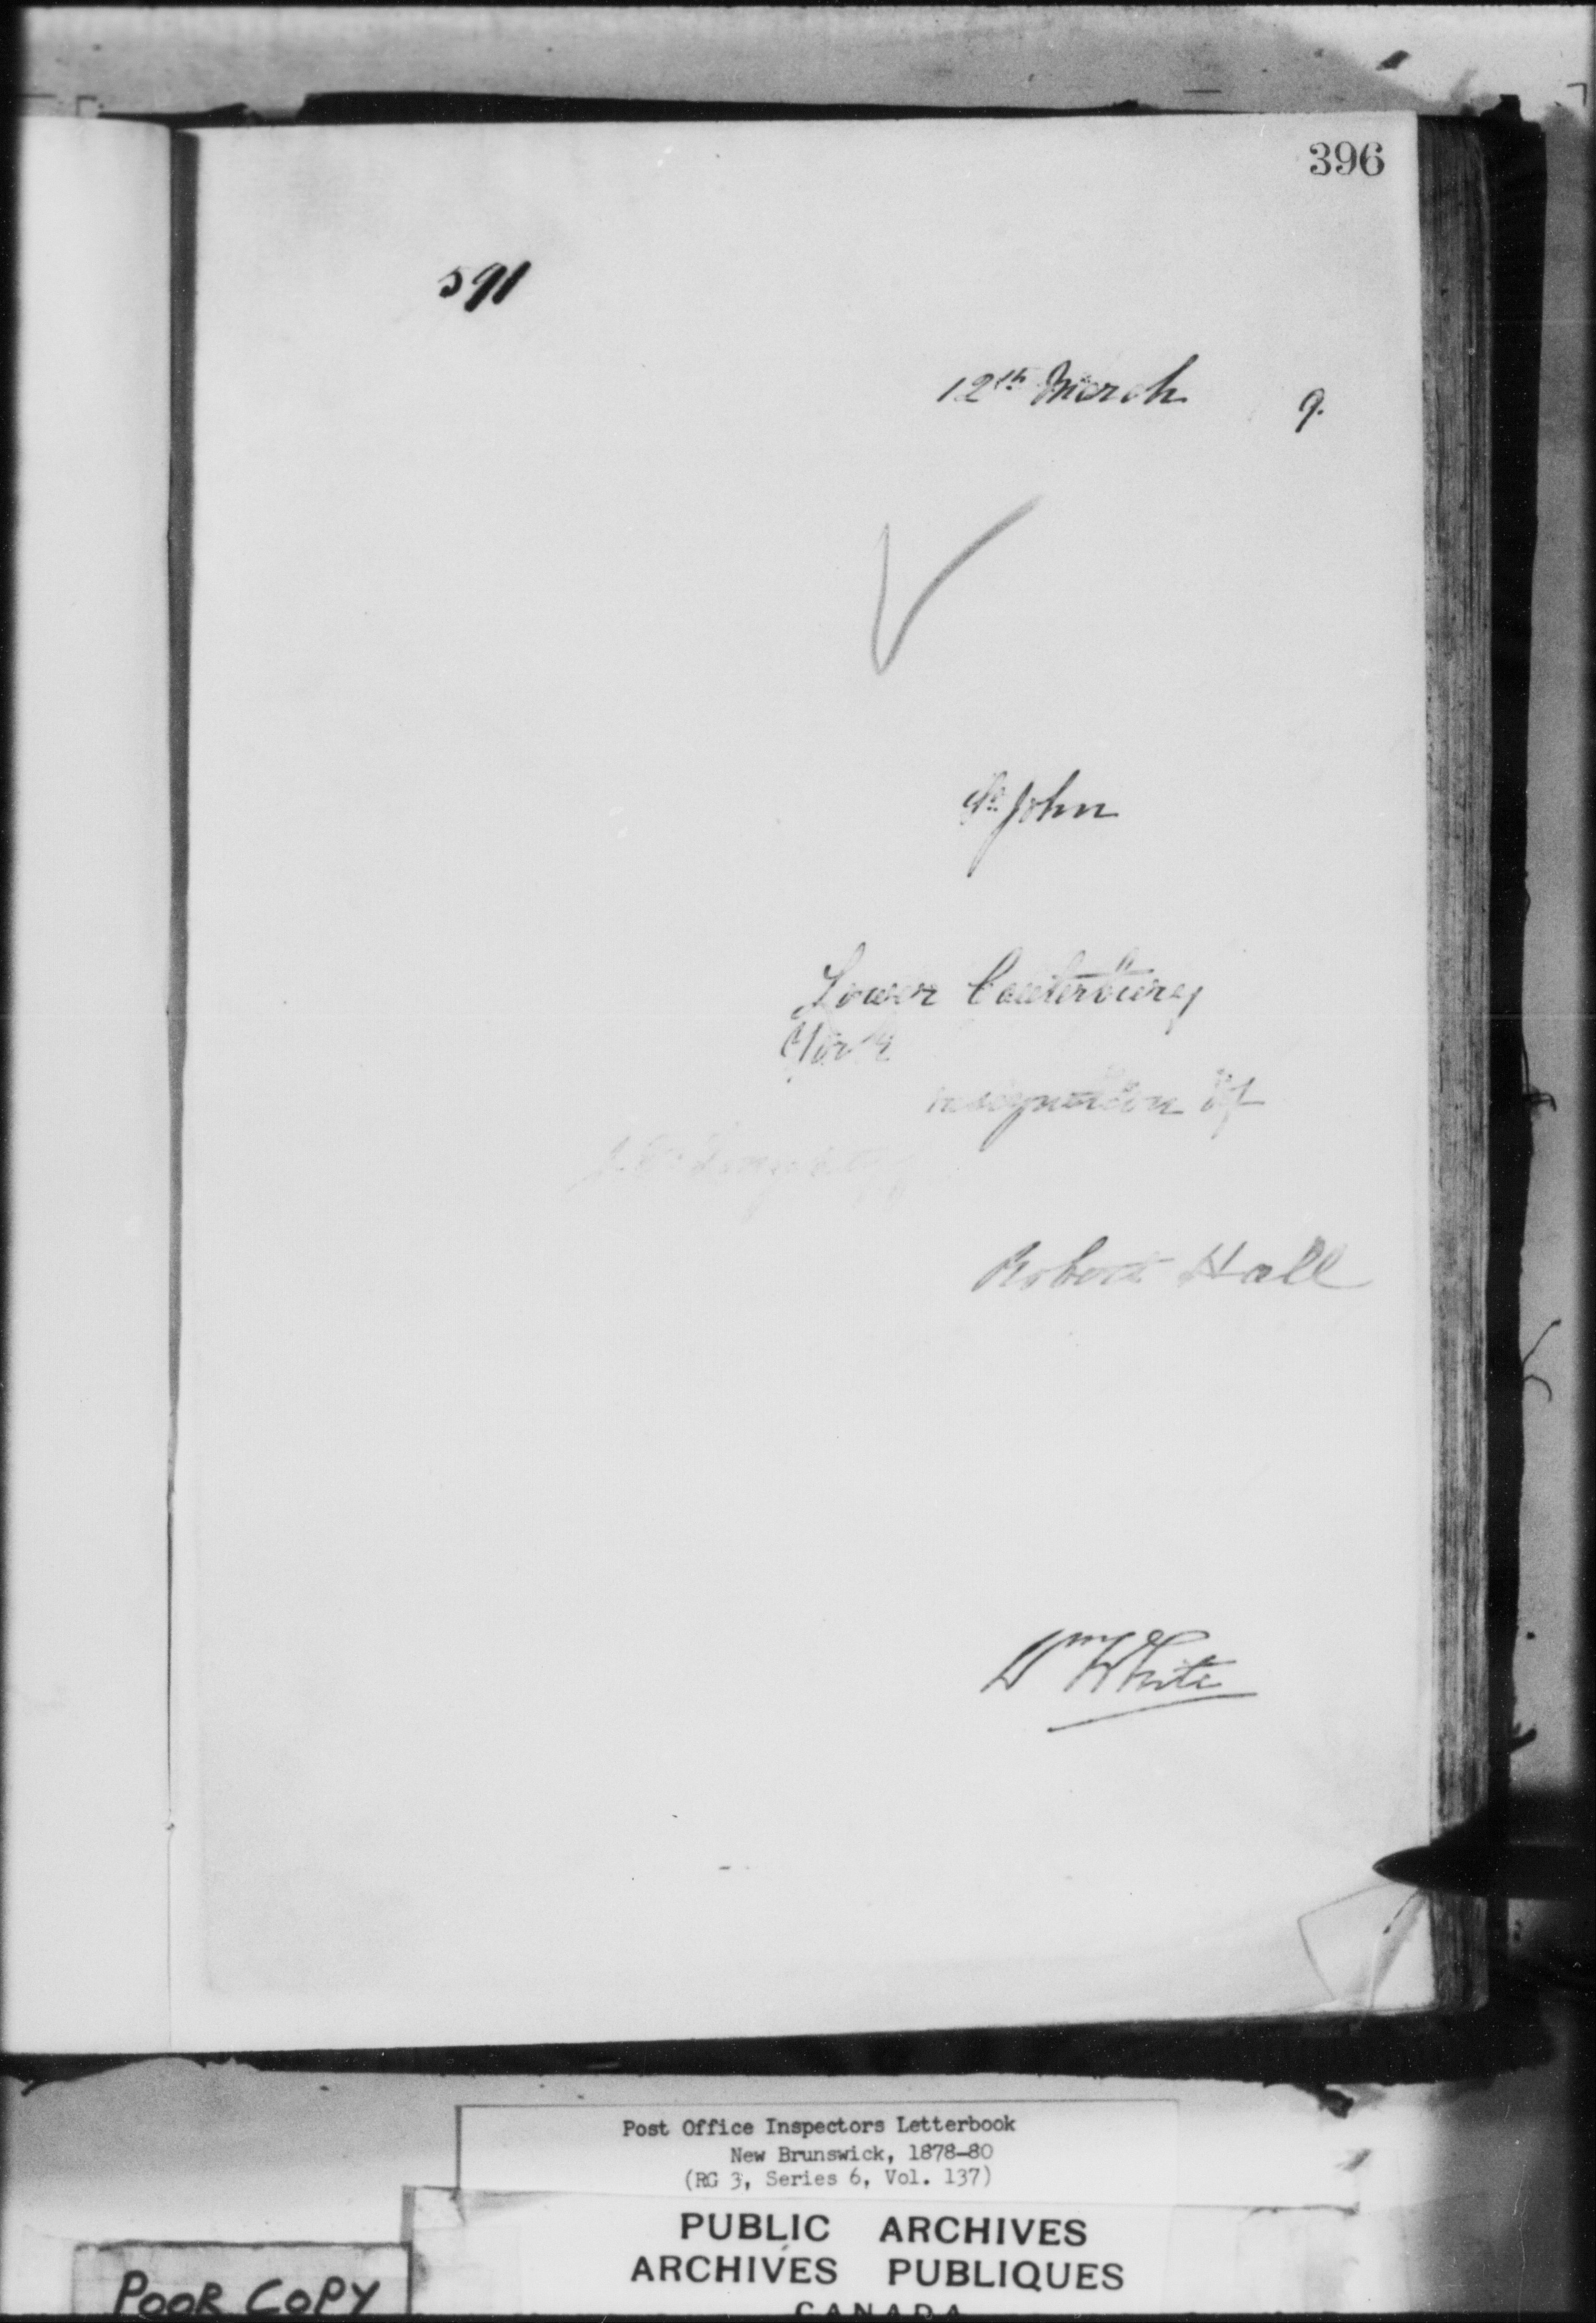 396
591
12th March 9.
St John
Lower Canterbury
York
resignation of
Robert Hall
Wm White
Post Office Inspectors Letterbook
New Brunswick, 1878-80
(RG 3, Series 6, Vol. 137)
PUBLIC ARCHIVES
ARCHIVES PUBLIQUES
CANADA
POOR COPY